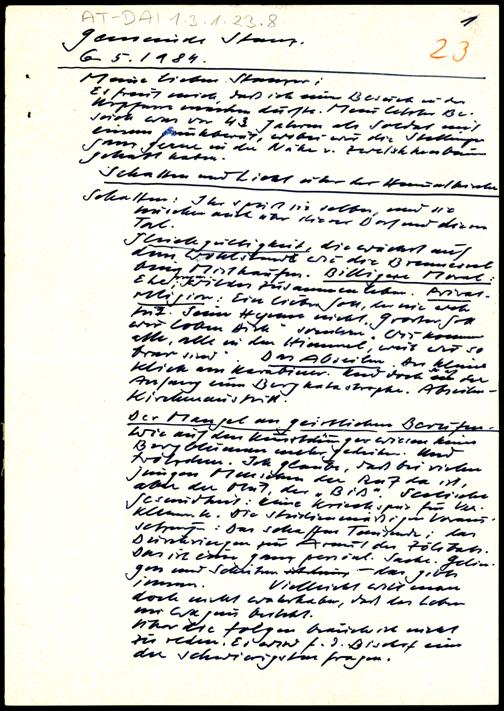 AT-DAI 1.3.1.23.8
1
23
Gemeinde Stanz.
6 5. 1984.
Meine lieben Stanzer!
Es freut mich, daß ich zum Besuch in der
Hopfarre machen durfte. Mein letzter Be-
such war vor 43 Jahren als Soldat mit
einem, wobei wir die Stellungen
ganz gerne in der Nähe v. Zwetschkenbäumen
gehabt haben.
Schatten und Licht über der Heimatkirche
Schatten: Ihr spürt sie selber, und sie
auch über dieses Dorf und dieses
Tal.
Gleichgültigkeit, die wächst auf
dem Wohlstand wie die Brennessel
beim Misthaufen. Billigere Moral:
Ehe, wildes Zusammenleben. Privat-
religion: Ein lieber Gott, der nie weh
tut. Seine Hymne nicht "Großer Gott
wir loben Dich" sondern "Wir kommen
alle, alle in den Himmel, weil wir so
brav sind". Das Abseilen. Der kleine
Klick am Karabiner. Und doch ist der
Anfang zum Bergkatastrophe. Abseilen -
Kirchenaustritt.
Der Mangel an geistlichen Berufen.
Wie auf den Kunstdüngerwiesen keine
Bergblumen mehr gedeihen. Und
trotzdem. Ich glaube, daß bei vielen
jungen Menschen der Ruf da ist,
aber der Mut, der "Biß". Seelische
Gesundheit: Eine
Die studienmäßigen Voraus-
setzung: Das schaffen Tausende; das
zur Armut des Zölibats.
Das ist eine ganz persönl. Sache. Gelin-
gen und Scheitern - das gibts
immer. Vielleicht will man
doch nicht wahrhaben, daß das Leben
ein Wagnis bleibt.
Über die Folgen brauche ich nicht
zu reden. Es wird f. d. Bischof eine
der schwierigsten Fragen.